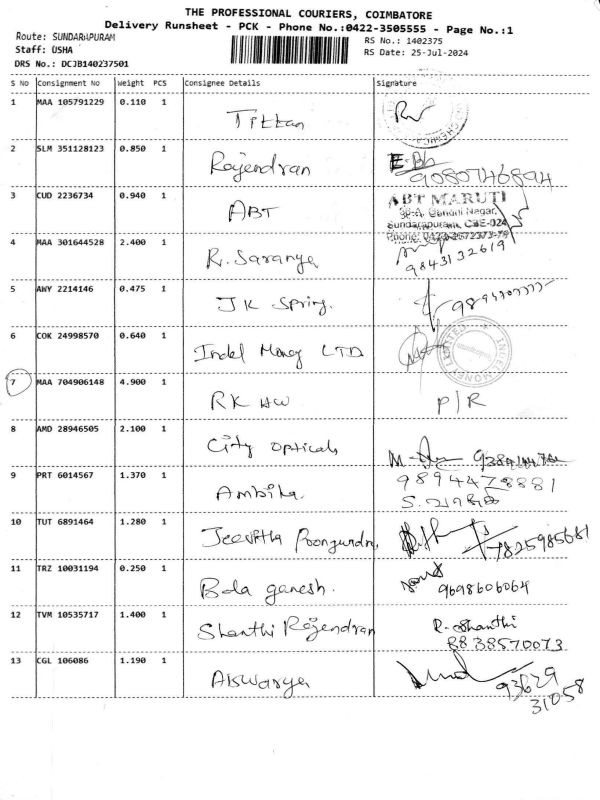 THE PROFESSIONAL COURIERS, COIMBATORE
Delivery Runsheet - PCK - Phone No.:0422-3505555 - Page No.:1
Route: SUNDARAPURAM
Staff: USHA
DRS No.: DCJB140237501
RS No.: 1402375
RS Date: 25-Jul-2024
S No Consignment No Weight PCS Consignee Details Signature
1 MAA 105791229 0.110 1
2 SLM 351128123 0.850 1 Rajendran 9080746894
3 CUD 2236734 0.940 1 ABT ABT MARUTI
Gandhi Nagar,
Sundarapuram, CBE-024
4 MAA 301644528 2.400 1 R. Saranya 9843132619
5 AWY 2214146 0.475 1 JK Spring.
6 COK 24998570 0.640 1 Indel Money LTD
7 MAA 704906148 4.900 1 RK HW P/R
8 AMD 28946505 2.100 1 City Opticals
9 PRT 6014567 1.370 1 Ambika 9894478881
10 TUT 6891464 1.280 1 Jeevitha 7825985681
11 TRZ 10031194 0.250 1 Bala ganesh. 9698606064
12 TVM 10535717 1.400 1 Shanthi Rajendran R. Shanthi
8838570073
13 CGL 106086 1.190 1 Aiswarya 93629
31058